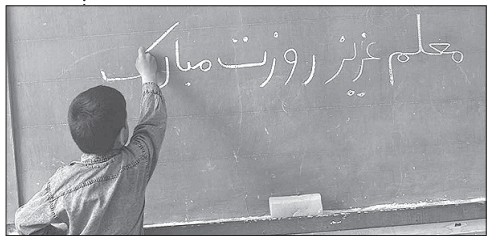 معلم عزیز روزت مبارک